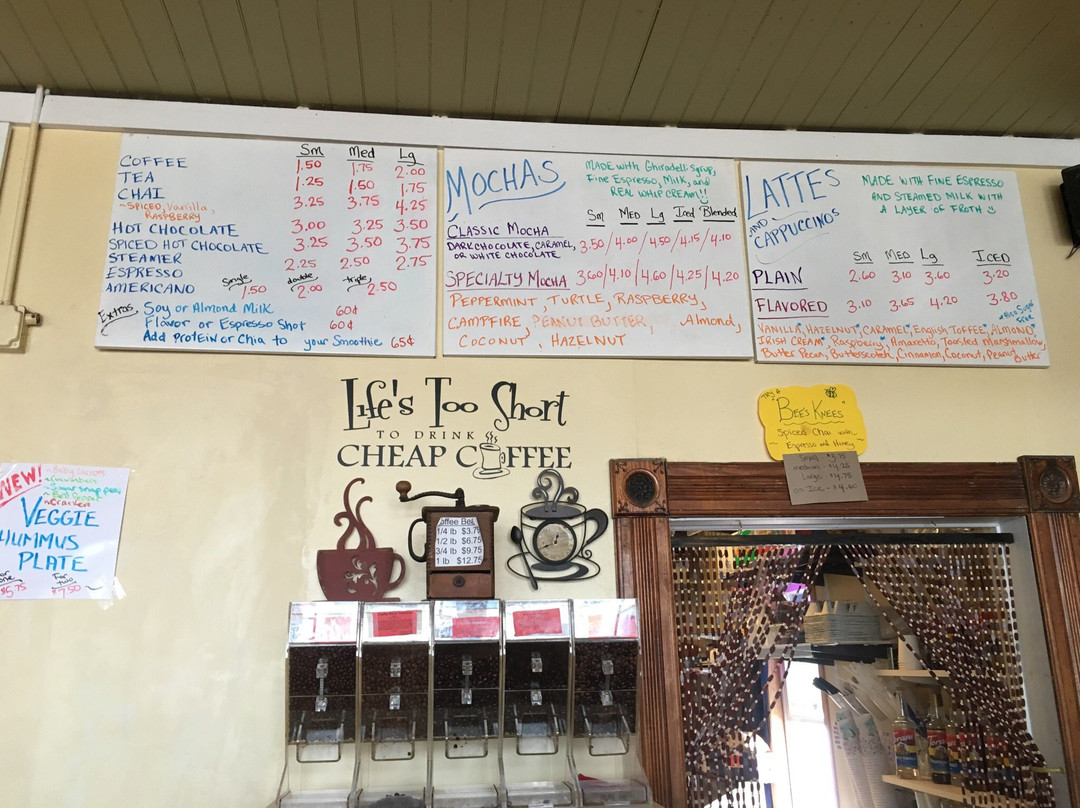 Sm Med Lg
COFFEE 1.50 1.75 2.00
TEA 1.25 1.50 1.75
CHAI 3.25 3.75 4.25
~SPICED, Vanilla,
RASPBERRY
HOT CHOCOLATE 3.00 3.25 3.50
SPICED HOT CHOCOLATE 3.25 3.50 3.75
STEAMER 2.25 2.50 2.75
ESPRESSO single double triple
AMERICANO 1.50 2.00 2.50
Extras Soy or Almond Milk 60¢
Flavor or Espresso Shot 60¢
Add Protein or Chia to your Smoothie 65¢
MOCHAS
MADE with Ghiradelli Syrup,
Fine Espresso, Milk, and
REAL WHIP CREAM!!
Sm MED Lg Iced Blended
CLASSIC MOCHA
DARK CHOCOLATE, CARAMEL, 3.50/4.00/4.50/4.15/4.10
OR WHITE CHOCOLATE
SPECIALTY MOCHA 3.60/4.10/4.60/4.25/4.20
PEPPERMINT, TURTLE, RASPBERRY,
CAMPFIRE, PEANUT BUTTER, Almond,
COCONUT, HAZELNUT
LATTES
AND
CAPPUCCINOS
MADE WITH FINE ESPRESSO
AND STEAMED MILK WITH
A LAYER OF FROTH
Sm MED Lg ICED
PLAIN 2.60 3.10 3.60 3.20
FLAVORED 3.10 3.65 4.20 3.80
Sugar
Free
VANILLA, HAZELNUT, CARAMEL, English TOFFEE, ALMOND,
IRISH CREAM, Raspberry, Amaretto, Toasted Marshmallow,
Butter Pecan, Butterscotch, Cinnamon, Coconut, Peanut Butter
Life's Too Short
TO DRINK
CHEAP COFFEE
TRY A
"BEE'S KNEES"
Spiced Chai with
~ Espresso and Honey ~
Small - $3.75
medium - $4.25
Large - $4.75
on Ice - $4.60
NEW!
~Baby Carrots
~Cucumbers
~Sugar snap peas
~Bell Pepper
~Crackers
VEGGIE
HUMMUS
PLATE
For
one
$5.75
For
two
$7.50
Coffee Bea
1/4 lb $3.75
1/2 lb $6.75
3/4 lb $9.75
1 lb $12.75
Torani